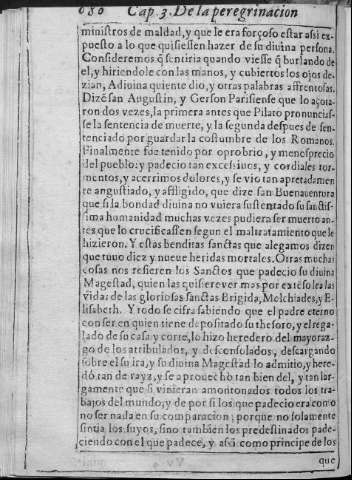 686 Cap. 3. De la peregrinacion
ministros de maldad, y que le era forçoso estar assi ex-
puesto a lo que quisiessen hazer de su diuina persona.
Consideremos q̃ sentiria quando viesse q̃ burlando de
el, y hiriendole con las manos, y cubiertos los ojos de-
zian, Adiuina quiente dio, y otras palabras affrentosas.
Dizẽ san Augustin, y Gerson Parisiense que lo açota-
ron dos vezes, la primera antes que Pilato pronuncias-
se la sentencia de muerte, y la segunda despues de sen-
tenciado por guardar la costumbre de los Romanos.
Finalmente fue tenido por oprobrio, y menosprecio
del pueblo: y padecio tan excessiuos, y cordiales tor-
mentos, y acerrimos dolores, y se vio tan apretadamen
te angustiado, y affligido, que dize san Buenauentura
que si la bondad diuina no vuiera sustentado su sanctis-
sima humanidad muchas vezes pudiera ser muerto an-
tes que lo crucificassen segun el maltratamiento que le
hizieron. Y estas benditas sanctas que alegamos dizen
que tuuo diez y nueue heridas mortales. Otras muchas
cosas nos refieren los Sanctos que padecio su diuina
Magestad, quien las quisiere ver mas por extẽso lea las
vidas de las gloriosas sanctas Brigida, Melchiades, y E-
lisabeth. Y todo se cifra sabiendo que el padre eterno
con ser en quien tiene depositado su thesoro, y el rega-
lado de su casa y corte, lo hizo heredero del mayoraz-
go de los atribulados, y desconsolados, descargando
sobre el su ira, y su diuina Magestad lo admitio, y here-
dó tan de rayz, y se aprouechò tan bien del, y tan lar-
gamente que si vinieran amontonados todos los tra-
bajos del mundo, y de por si los que padecio era como
no ser nada en su comparacion; porque no solamente
sintia los suyos, sino tambien los predestinados pade-
ciendo con el que padece, y assi como principe de los
que